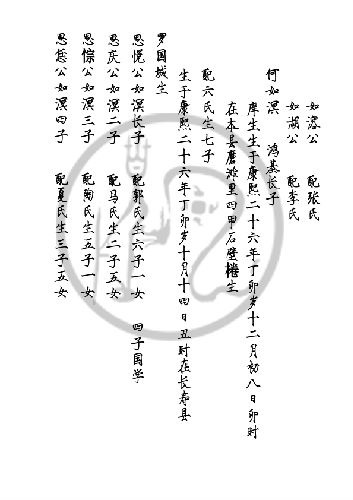 如洛公　配张氏
如湖公　配李氏
何如溟　鸿基长子
庠生生于康熙二十六年丁卯岁十二月初八日卯时
在本县磨滩里四甲石壁楼生
配六氏生七子
生于康熙二十六年丁卯岁十月十四日丑时在长寿县
罗围城生
思悦公如溟长子　配郭氏生六子一女　四子国学
思庆公如溟二子　配马氏生二子五女
思悰公如溟三子　配陶氏生五子一女
思恁公如溟四子　配夏氏生三子五女